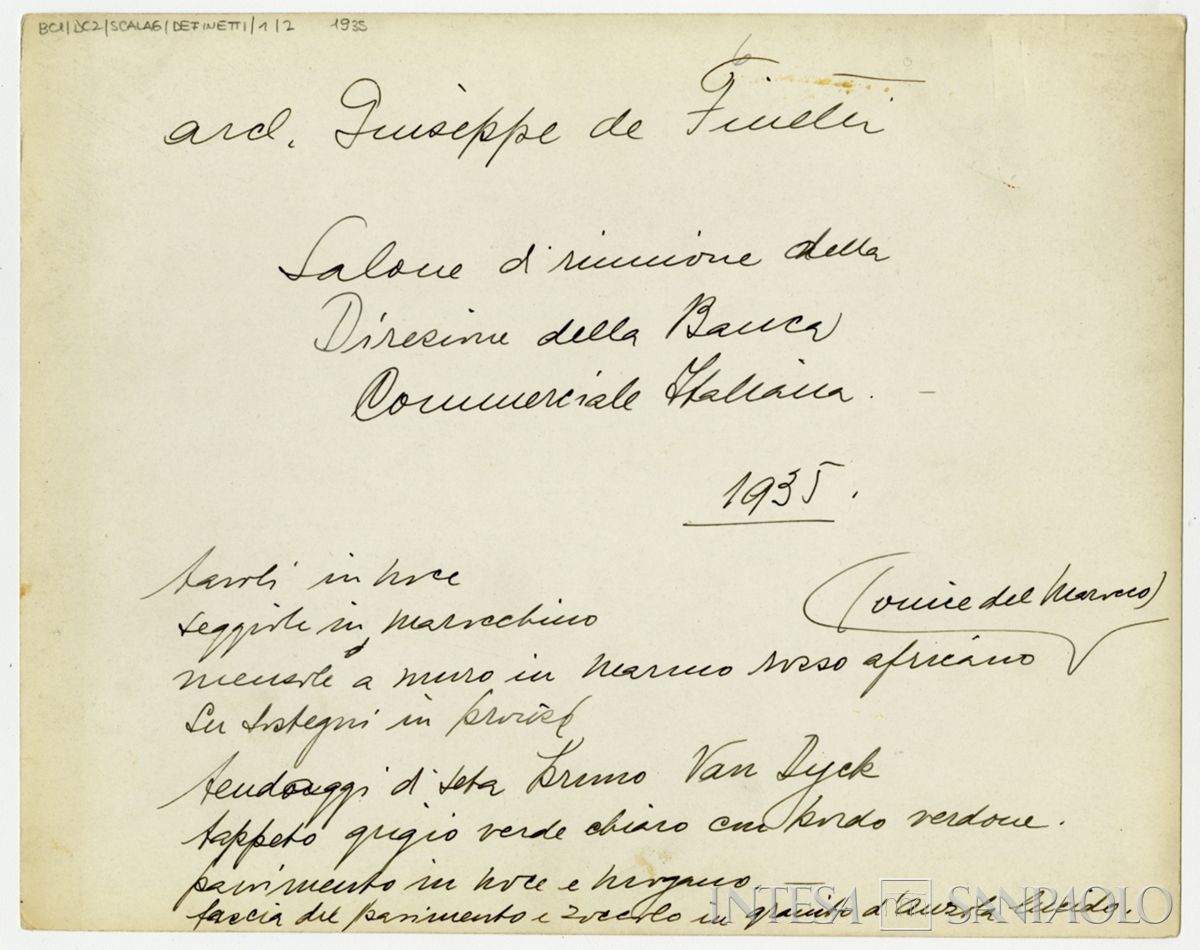 BCI/DC2/SCALA6/DEFINETTI/1/2 1935
arch. Giuseppe de Finetti
Salone di riunione della
Direzione della Banca
Commerciale Italiana.
1935.
tavoli in noce
seggiole in marocchino
(onice del Marocco)
mensole a muro in marmo rosso africano
su sostegni in bronzo
tendaggi di seta bruno Van Dyck
tappeto grigio verde chiaro con bordo verdone.
pavimento in noce e mogano
fascia del pavimento e zoccolo in granito d'Anzola lucido.
INTESA SANPAOLO